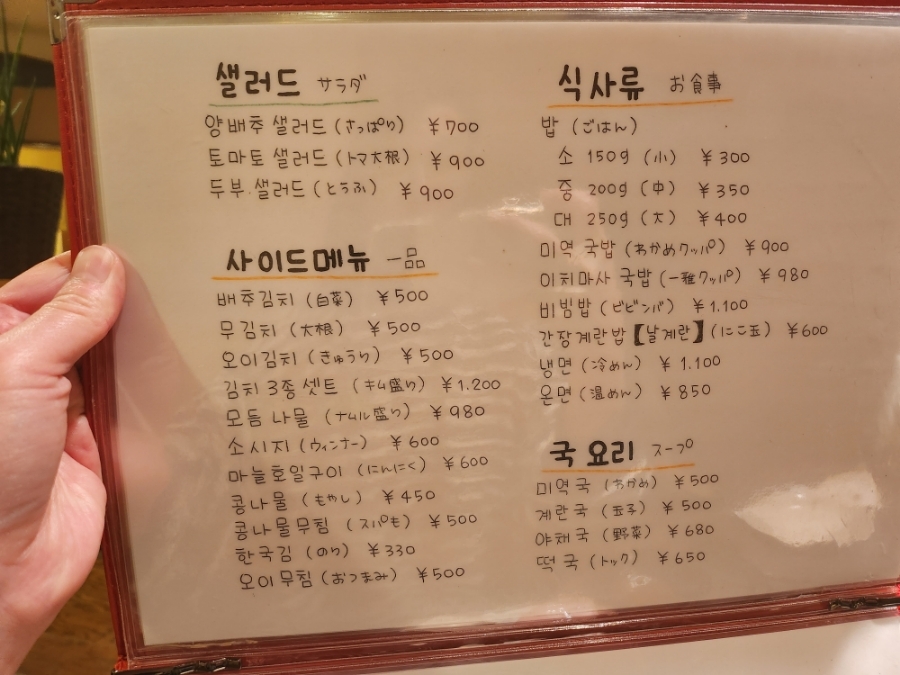 샐러드 サラダ
양배추 샐러드 (さっぱり) ¥700
토마토 샐러드 (トマ大根) ¥900
두부 샐러드 (とうふ) ¥900
사이드메뉴 一品
배추김치 (白菜) ¥500
무김치 (大根) ¥500
오이김치 (きゅうり) ¥500
김치 3종 셋트 (キム盛り) ¥1.200
모듬 나물 (ナムル盛り) ¥980
소시지 (ウィンナー) ¥600
마늘호일구이 (にんにく) ¥600
콩나물 (もやし) ¥450
콩나물무침 (スパも) ¥500
한국김 (のり) ¥330
오이무침 (おつまみ) ¥500
식사류 お食事
밥 (ごはん)
소 150g (小) ¥300
중 200g (中) ¥350
대 250g (大) ¥400
미역 국밥 (わかめクッパ) ¥900
이치마사 국밥 (一稚クッパ) ¥980
비빔밥 (ビビンバ) ¥1.100
간장계란밥【날계란】(にこ玉) ¥600
냉면 (冷めん) ¥1.100
온면 (温めん) ¥850
국 요리 スープ
미역국 (わかめ) ¥500
계란국 (玉子) ¥500
야채국 (野菜) ¥680
떡국 (トック) ¥650